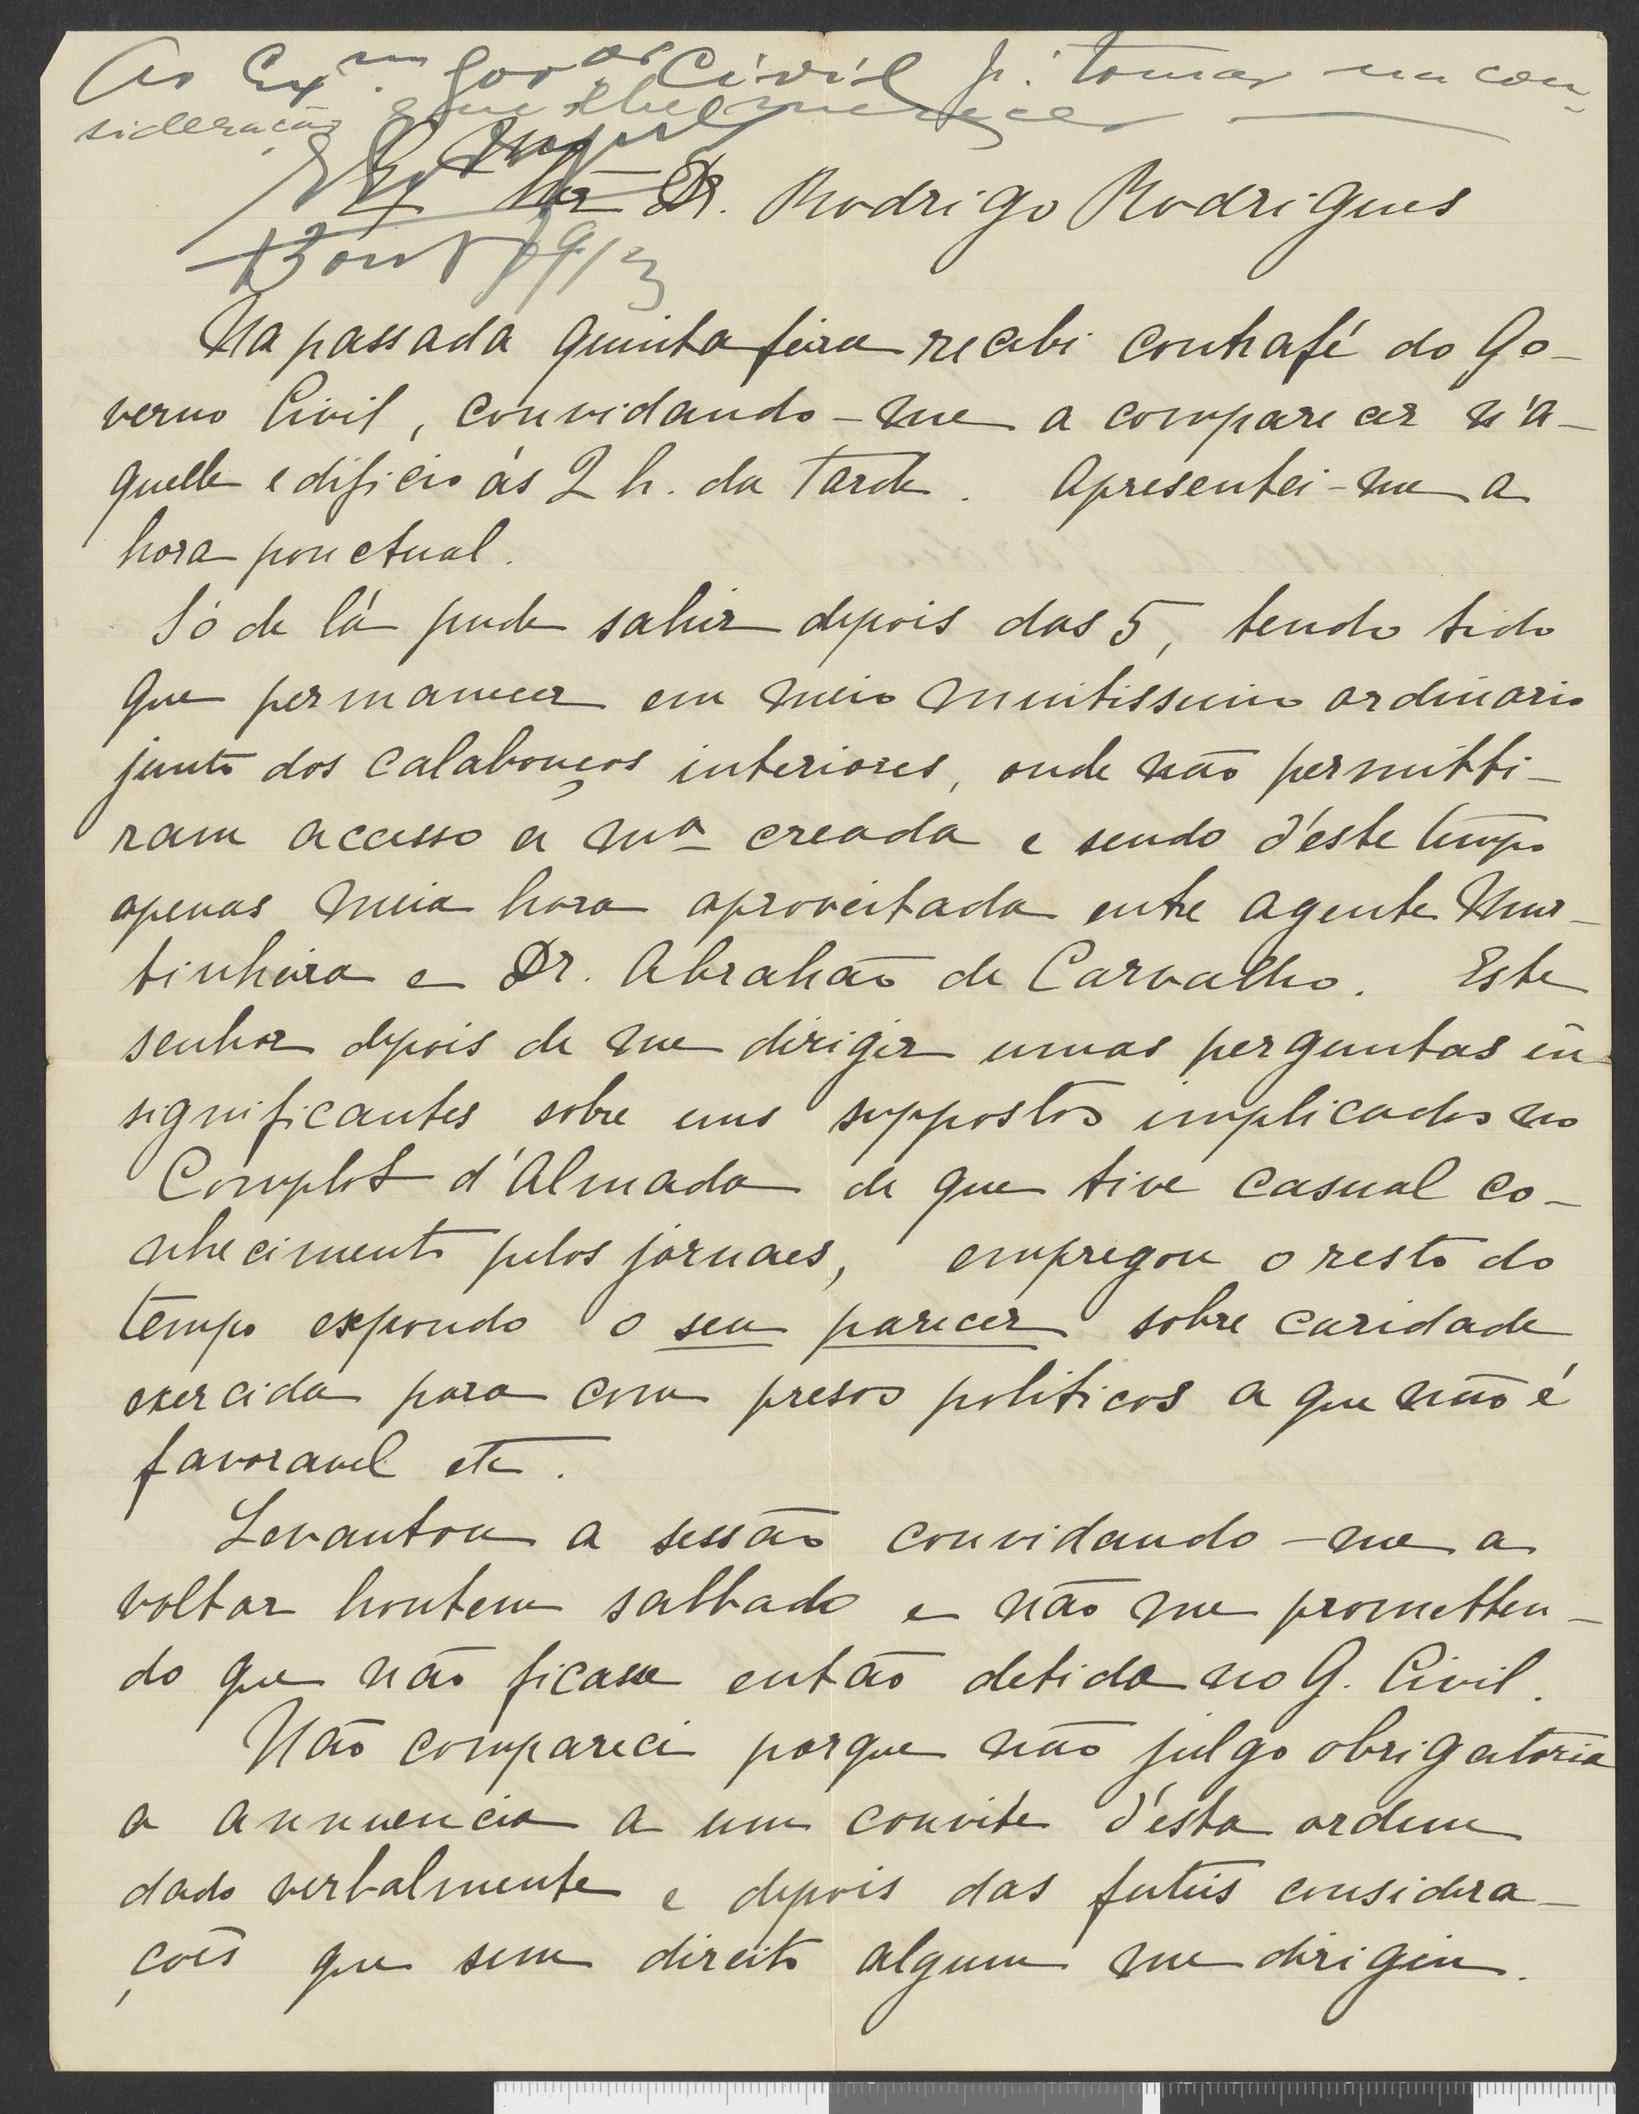 Ao Exmo. Govor Civil p.ª tomar na con-
sideração que lhe merecer
Exmo Snr Dr. Rodrigo Rodrigues
13 out 913
Na passada quinta feira recebi contrafé do Go-
verno Civil, convidando-me a comparecer n'a-
quelle edificio ás 2 h. da tarde. Apresentei-me a
hora ponctual.
Só de lá pude sahir depois das 5, tendo tido
que permanecer em meio muitissimo ordinario
junto dos calabouços interiores, onde não permitti-
ram accesso a mª creada e sendo d'este tempo
apenas meia hora aproveitada entre agente Mur-
tinheira e Dr. Abrahão de Carvalho. Este
senhor depois de me dirigir umas perguntas in-
significantes sobre uns suppostos implicados no
Complot d'Almada de que tive casual co-
nhecimento pelos jornaes, empregou o resto do
tempo expondo o seu parecer sobre caridade
exercida para com presos politicos a que não é
favoravel etc.
Levantou a sessão convidando-me a
voltar hontem sabbado e não me prometten-
do que não ficasse então detida no G. Civil.
Não compareci porque não julgo obrigatoria
a annuencia a um convite d'esta ordem
dado verbalmente e depois das futeis considera-
ções que sem direito algum me dirigiu.